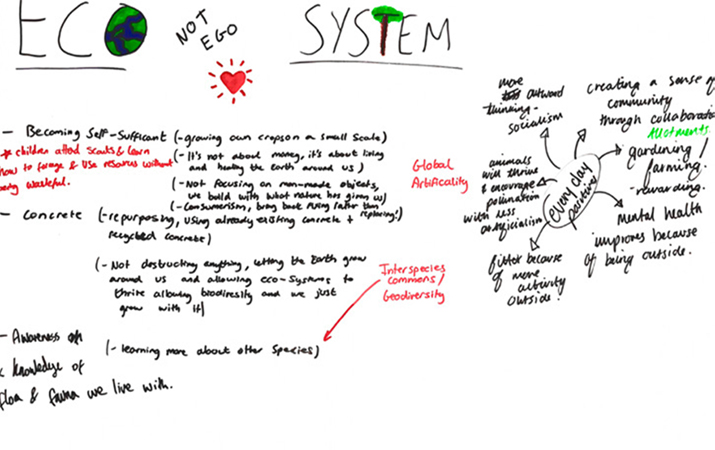 ECO
NOT
EGO
SYSTEM
- Becoming Self-Sufficant (-growing own crops on a small scale)
* children attend scouts & learn
how to forage & use resources without
being wasteful.
(- It's not about money, it's about living
and healing the Earth around us)
(-Not focusing on man-made objects,
we build with what nature has given us)
(-Consumerism, bring back fixing rather than
replacing!)
- Concrete (-repurposing, using already existing concrete +
recycled concrete)
(-Not destructing anything, letting the Earth grow
around us and allowing eco-systems to
thrive allowing biodiversity and we just
grow with it)
- Awareness of
& knowledge of
flora & fauna we live with.
(-learning more about other species)
Global
Artificality
Interspecies
commons/
Geodiversity
every day
more
outward
thinking-
socialism
creating a sense of
community
through collaboration
Allotments.
gardening/
farming.
-rewarding.
Mental health
improves because
of being outside.
fitter because
of more
activity
outside.
animals
will thrive
& encourage
pollination
with less